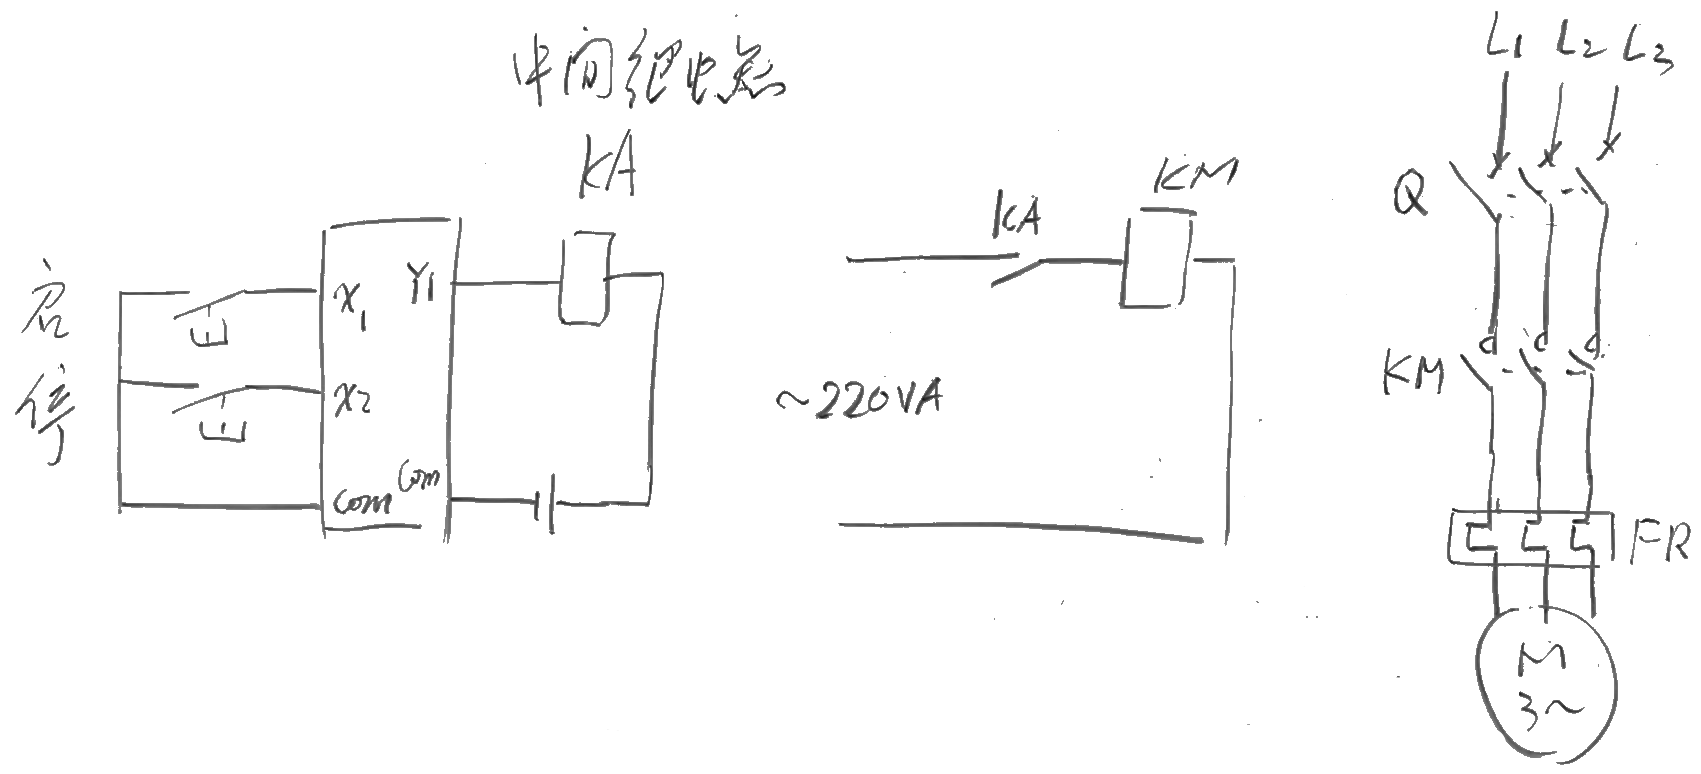 中间继电器
KA
启
停
X1
Y1
X2
Com
Com
KA
KM
~220VA
L1 L2 L3
Q
KM
FR
M
3~